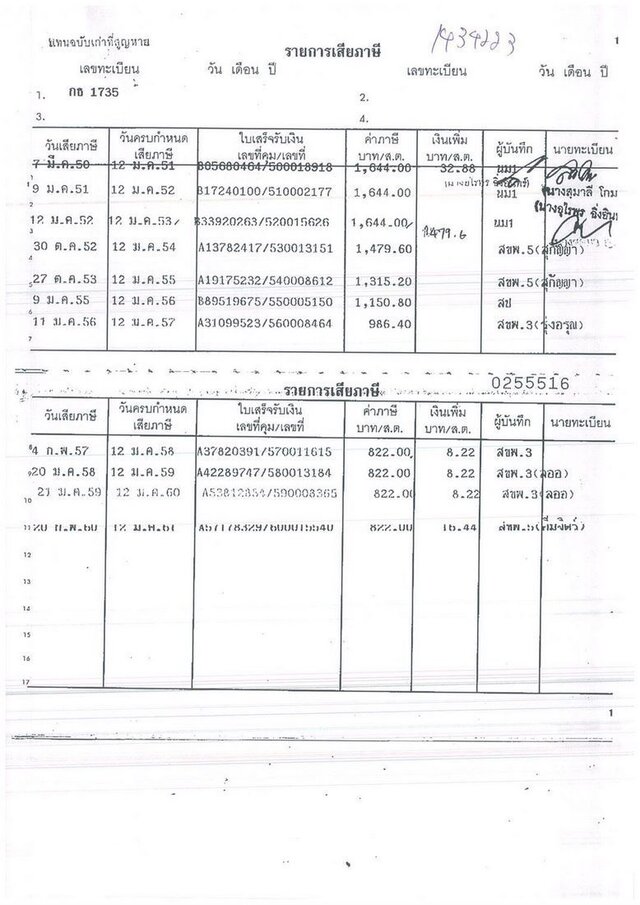 แทนฉบับเก่าที่สูญหาย
1434223
1
รายการเสียภาษี
เลขทะเบียน วัน เดือน ปี เลขทะเบียน วัน เดือน ปี
1. กธ 1735 2.
3. 4.
วันเสียภาษี วันครบกำหนดเสียภาษี ใบเสร็จรับเงิน เลขที่คุม/เลขที่ ค่าภาษี บาท/ส.ต. เงินเพิ่ม บาท/ส.ต. ผู้บันทึก นายทะเบียน
7 มี.ค.50 12 ม.ค.51 B05680464/500018918 1,644.00 32.88 นม1
1
9 ม.ค.51 12 ม.ค.52 B17240100/510002177 1,644.00 นม1 (นางสุมาลี โกม
12 ม.ค.52 12 ม.ค.53 B33920263/520015626 1,644.00 นม1
1479.6
30 ต.ค.52 12 ม.ค.54 A13782417/530013151 1,479.60 สขพ.5(สุกัญญา)
4
5 27 ต.ค.53 12 ม.ค.55 A19175232/540008612 1,315.20 สขพ.5(สุกัญญา)
9 ม.ค.55 12 ม.ค.56 B89519675/550005150 1,150.80 สป
6
11 ม.ค.56 12 ม.ค.57 A31099523/560008464 986.40 สขพ.3(รุ่งอรุณ)
7
รายการเสียภาษี 0255516
วันเสียภาษี วันครบกำหนดเสียภาษี ใบเสร็จรับเงิน เลขที่คุม/เลขที่ ค่าภาษี บาท/ส.ต. เงินเพิ่ม บาท/ส.ต. ผู้บันทึก นายทะเบียน
4 ก.พ.57 12 ม.ค.58 A37820391/570011615 822.00 8.22 สขพ.3
9 20 ม.ค.58 12 ม.ค.59 A42289747/580013184 822.00 8.22 สขพ.3(ลออ)
21 ม.ค.59 12 ม.ค.60 A53812834/590008365 822.00 8.22 สขพ.3(ลออ)
10
11 20 ก.พ.60 12 ม.ค.61 A57178329/600015540 822.00 16.44 สขพ.5
12
13
14
15
16
17
1